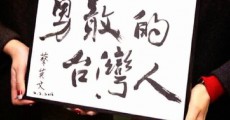 勇敢的
台灣人
蔡英文